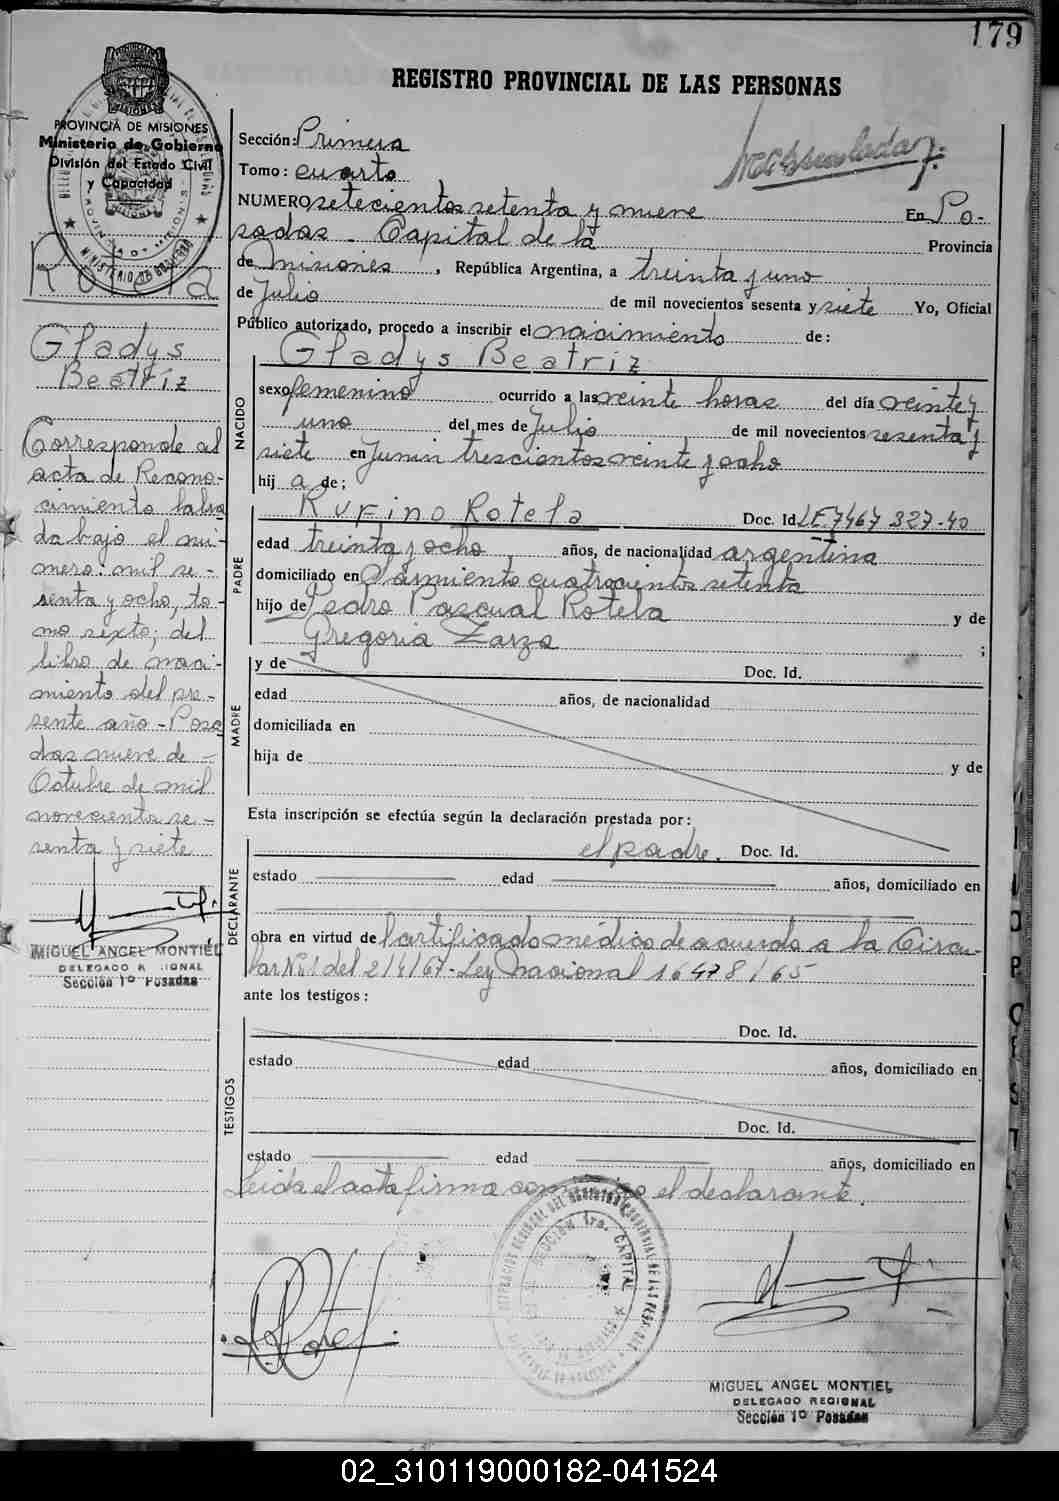 179
REGISTRO PROVINCIAL DE LAS PERSONAS
PROVINCIA DE MISIONES
Ministerio de Gobierno
División del Estado Civil
y Capacidad
Rotela
Gladys
Beatriz
Corresponde al
acta de Recono-
cimiento labra
da bajo el nu-
mero: mil se-
senta y ocho, to-
mo sexto; del
libro de naci-
miento del pre-
sente año - Posa
das nueve de
Octubre de mil
novecientos se-
senta y siete
MIGUEL ANGEL MONTIEL
DELEGADO REGIONAL
Sección 1º Posadas
Sección: Primera
Tomo: cuarto
NUMERO setecientos setenta y nueve En Po-
sadas - Capital de la Provincia
de Misiones, República Argentina, a treinta y uno
de Julio de mil novecientos sesenta y siete Yo, Oficial
Público autorizado, procedo a inscribir el nacimiento de:
Gladys Beatriz
NACIDO
sexo femenino ocurrido a las veinte horas del día veinte y
uno del mes de Julio de mil novecientos sesenta y
siete en Junin trescientos veinte y ocho
hij a de;
PADRE
Rufino Rotela Doc. Id. LE 7467 327-40
edad treinta y ocho, años, de nacionalidad argentina
domiciliado en Sarmiento cuatrocientos setenta
hijo de Pedro Pascual Rotela y de
Gregoria Zarza ;
MADRE
y de Doc. Id.
edad años, de nacionalidad
domiciliada en
hija de y de
Esta inscripción se efectúa según la declaración prestada por:
DECLARANTE
el padre. Doc. Id.
estado edad años, domiciliado en
obra en virtud de Certificado médico de acuerdo a la Circu-
lar Nº 1 del 2/4/67 - Ley Nacional 16478/65
ante los testigos:
TESTIGOS
Doc. Id.
estado edad años, domiciliado en
Doc. Id.
estado edad años, domiciliado en
Leida el acta firma conmigo el declarante.
SECCION 1ra. CAPITAL
MIGUEL ANGEL MONTIEL
DELEGADO REGIONAL
Sección 1º Posadas
02_310119000182-041524